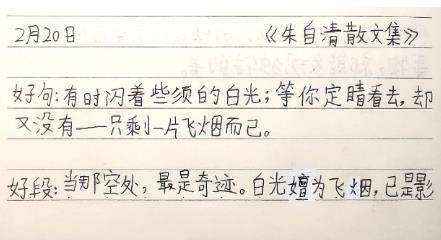 2月20日 《朱自清散文集》
好句:有时闪着些须的白光;等你定睛看去,却
又没有——只剩一片飞烟而已。
好段:当那空处,最是奇迹。白光嬗为飞烟,已是影